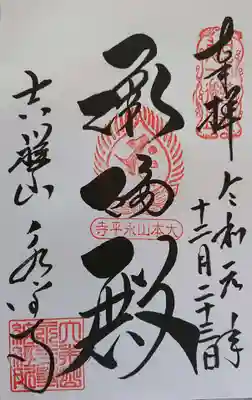 奉拝
令和元年
十二月二十二日
承陽殿
大本山永平寺
吉祥山 永平寺